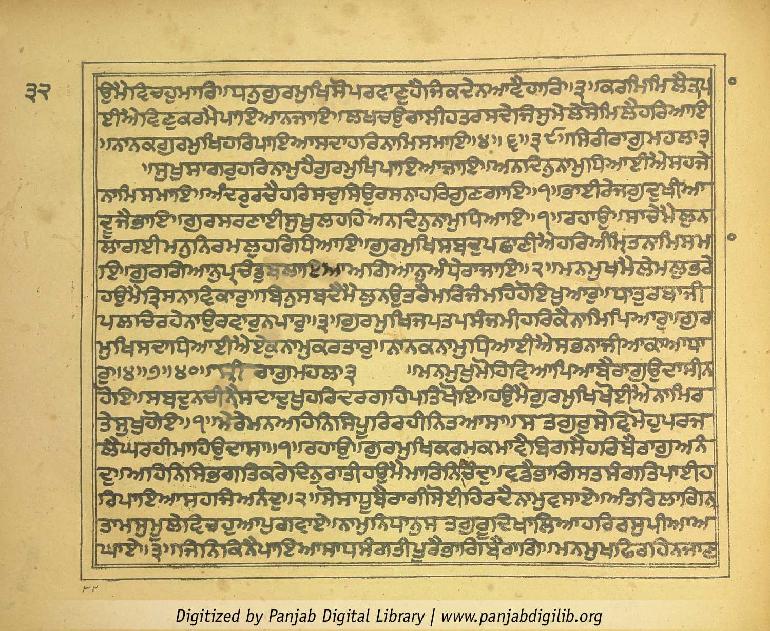 ੩੨
ਉਮੈਵਿਚਹੁਮਾਰਿ॥ਧਨੁਗੁਰਮੁਖਿਸੋਪਰਵਾਣੁਹੈਜਿਕਦੇਨਆਵੈਹਾਰਿ॥੩॥ਕਰਮਿਮਿਲੈਤਪਾ
ਈਐਵਿਣੁਕਰਮੈਪਾਇਆਨਜਾਇ॥ਲਖਚਉਰਾਸੀਹਤਰਸਦੇਜਿਸੁਮੇਲੇਸੋਮਿਲੈਹਰਿਆਇ
॥ਨਾਨਕਗੁਰਮੁਖਿਹਰਿਪਾਇਆਸਦਾਹਰਿਨਾਮਿਸਮਾਇ॥੪॥੬॥੩੯॥ਸਿਰੀਰਾਗੁਮਹਲਾ੩
॥ਸੁਖਸਾਗਰੁਹਰਿਨਾਮੁਹੈਗੁਰਮੁਖਿਪਾਇਆਜਾਇ॥ਅਨਦਿਨੁਨਾਮੁਧਿਆਈਐਸਹਜੇ
ਨਾਮਿਸਮਾਇ॥ਅੰਦਰੁਰਚੈਹਰਿਸਚਸਿਉਰਸਨਾਹਰਿਗੁਣਗਾਇ॥੧॥ਭਾਈਰੇਜਗੁਦੁਖੀਆ
ਦੂਜੈਭਾਇ॥ਗੁਰਸਰਣਾਈਸੁਖੁਲਹਹਿਅਨਦਿਨੁਨਾਮੁਧਿਆਇ॥੧॥ਰਹਾਉ॥ਸਾਚੇਮੈਲੁਨ
ਲਾਗਈਮਨੁਨਿਰਮਲੁਹਰਿਧਿਆਇ॥ਗੁਰਮੁਖਿਸਬਦੁਪਛਾਣੀਐਹਰਿਅੰਮ੍ਰਿਤਨਾਮਿਸਮਾ
ਇ॥ਗੁਰਗਿਆਨੁਪ੍ਰਚੰਡੁਬਲਾਇਆਅਗਿਆਨੁਅੰਧੇਰਾਜਾਇ॥੨॥ਮਨਮੁਖਮੈਲੇਮਲੁਭਰੇ
ਹਉਮੈਤ੍ਰਿਸਨਾਵਿਕਾਰੁ॥ਬਿਨੁਸਬਦੈਮੈਲੁਨਉਤਰੈਮਰਿਜੰਮਹਿਹੋਇਖੁਆਰੁ॥ਧਾਤੁਰਬਾਜੀ
ਪਲਚਿਰਹੇਨਾਉਰਵਾਰੁਨਪਾਰੁ॥੩॥ਗੁਰਮੁਖਿਜਪਤਪਸੰਜਮੀਹਰਿਕੈਨਾਮਿਪਿਆਰੁ॥ਗੁਰ
ਮੁਖਿਸਦਾਧਿਆਈਐਏਕੁਨਾਮੁਕਰਤਾਰੁ॥ਨਾਨਕਨਾਮੁਧਿਆਈਐਸਭਨਾਜੀਆਕਾਆਧਾ
ਰੁ॥੪॥੭॥੪੦॥ਸ੍ਰੀ ਰਾਗੁਮਹਲਾ੩ ॥ਮਨਮੁਖੁਮੋਹਿਵਿਆਪਿਆਬੈਰਾਗੁਉਦਾਸੀਨ
ਹੋਇ॥ਸਬਦੁਨਚੀਨੈਸਦਾਦੁਖੁਹਰਿਦਰਗਹਿਪਤਿਖੋਇ॥ਹਉਮੈਗੁਰਮੁਖਿਖੋਈਐਨਾਮਿਰ
ਤੇਸੁਖੁਹੋਇ॥੧॥ਮੇਰੇਮਨਅਹਿਨਿਸਿਪੂਰਿਰਹੀਨਿਤਆਸਾ॥ਸਤਗੁਰੁਸੇਵਿਮੋਹੁਪਰਜ
ਲੈਘਰਹੀਮਾਹਿਉਦਾਸਾ॥੧॥ਰਹਾਉ॥ਗੁਰਮੁਖਿਕਰਮਕਮਾਵੈਬਿਗਸੈਹਰਿਬੈਰਾਗੁਅਨੰ
ਦੁ॥ਅਹਿਨਿਸਿਭਗਤਿਕਰੇਦਿਨੁਰਾਤੀਹਉਮੈਮਾਰਿਨਿਚੰਦੁ॥ਵਡੈਭਾਗਿਸਤਸੰਗਤਿਪਾਈਹ
ਰਿਪਾਇਆਸਹਜਿਅਨੰਦੁ॥੨॥ਸੋਸਾਧੂਬੈਰਾਗੀਸੋਈਹਿਰਦੈਨਾਮੁਵਸਾਏ॥ਅੰਤਰਿਲਾਗਿਨ
ਤਾਮਸੁਮੂਲੇਵਿਚਹੁਆਪੁਗਵਾਏ॥ਨਾਮੁਨਿਧਾਨੁਸਤਗੁਰੂਦਿਖਾਲਿਆਹਰਿਰਸੁਪੀਆਅ
ਘਾਏ॥੩॥ਜਿਨਿਕਿਨੈਪਾਇਆਸਾਧਸੰਗਤੀਪੂਰੈਭਾਗਿਬੈਰਾਗਿ॥ਮਨਮੁਖਫਿਰਹਿਨਜਾਣ
Digitized by Panjab Digital Library | www.panjabdigilib.org